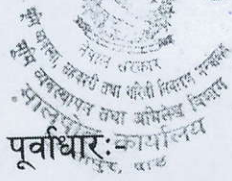 नेपाल सरकार
भूमि व्यवस्था, सहकारी तथा गरिबी निवारण मन्त्रालय
भूमि व्यवस्थापन तथा अभिलेख विभाग
मालपोत कार्यालय
पूर्वाधारः-